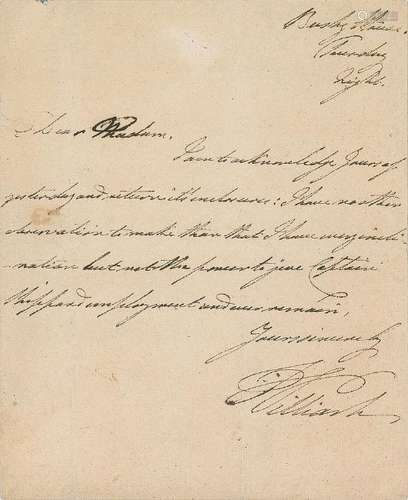 Bushy House.
Tuesday
Night.
Dear Madam.
I am to acknowledge Yours of
yesterday and return it's enclosures: I have no other
observation to make than that I have every incli-
-nation but not the power to give Captain
employment and ever remain,
Yours sincerely
William